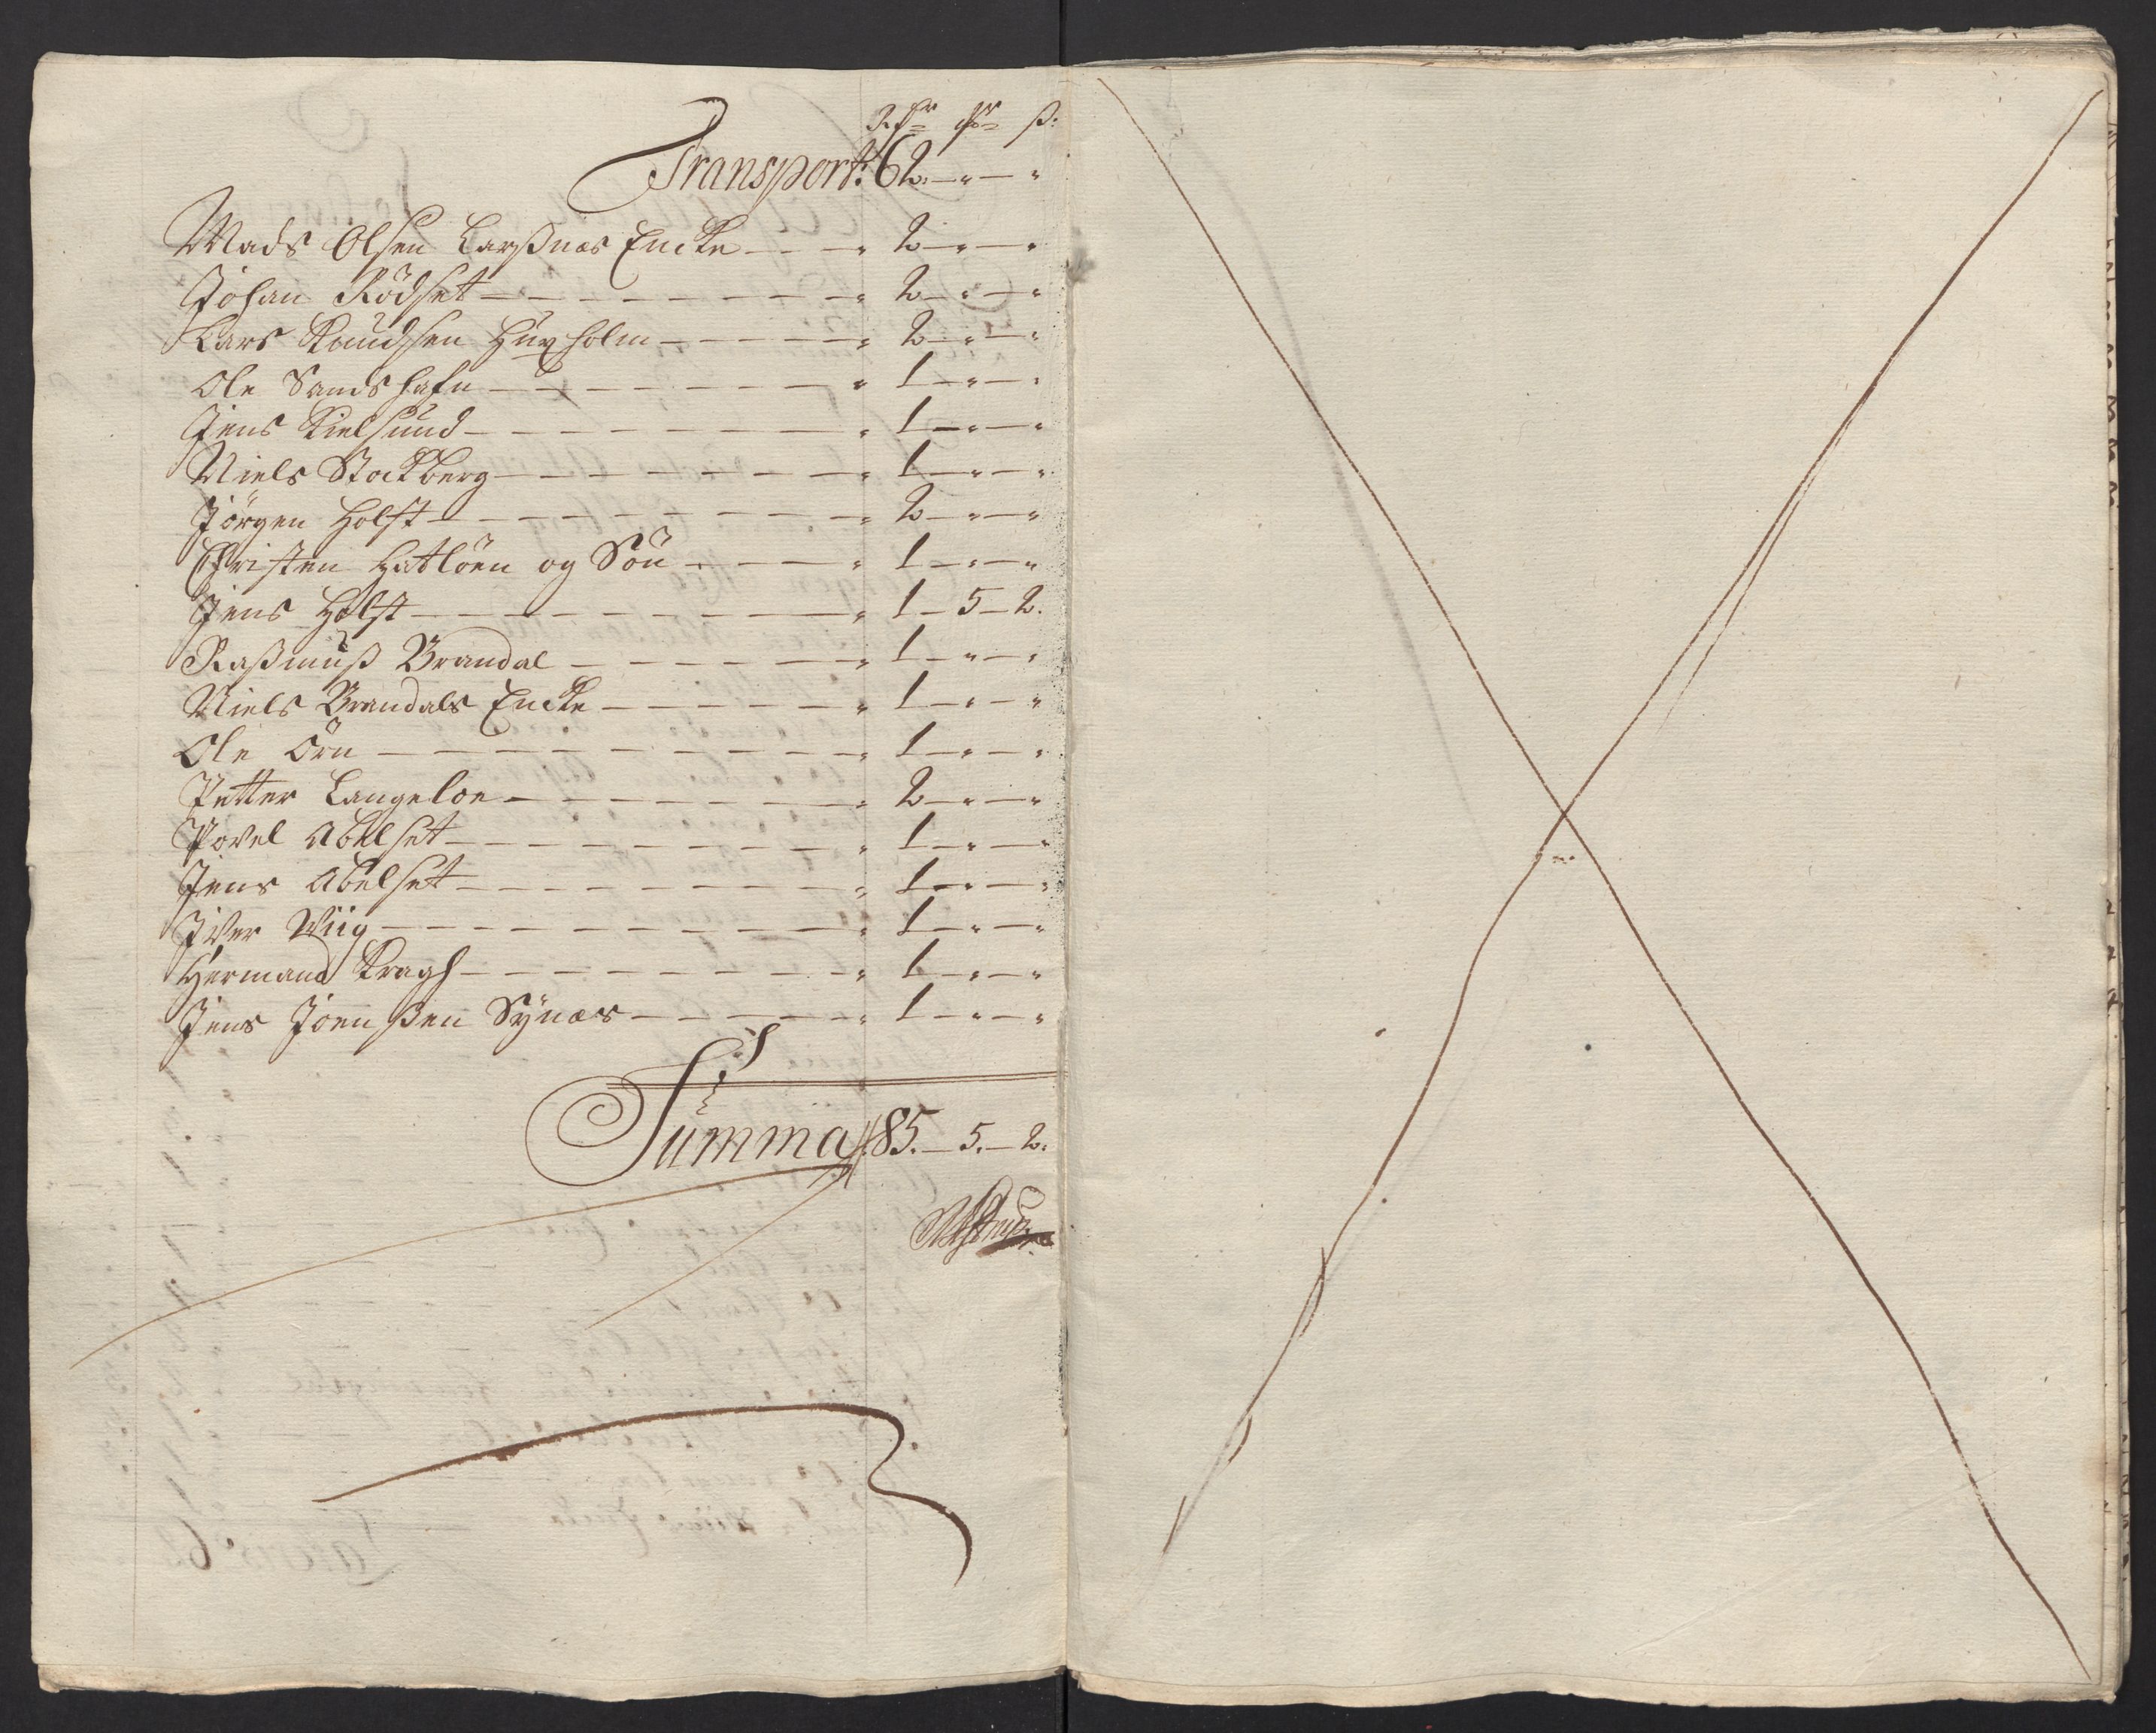 Rdr mr ß:
Transport: 62. — " — "
Mads Olsen Larßnæs Encke — " 2 — " — "
Johan Rödset — " 2 — " — "
Lars Knudsen Huxholm — " 2 — " — "
Ole Sandshafn — " 1 — " — "
Jens Kielsund — " 1 — " — "
Niels Stockberg — " 1 — " — "
Jörgen Holst — " 2 — " — "
Christen Hatlöen og Sön — " 1 — " — "
Jens Holst — " 1 — 5 — 2.
Raßmuß Brandal — " 1 — " — "
Niels Brandals Encke — " 1 — " — "
Ole Örn — " 1 — " — "
Petter Langeloe — " 2 — " — "
Povel Abelset — " 1 — " — "
Jens Abelset — " 1 — " — "
Iver Wiig — " 1 — " — "
Hermand Kragh — " 1 — " — "
Jens Joenßen Synæs — " 1 — " — "
Summa 85. — 5. — 2.